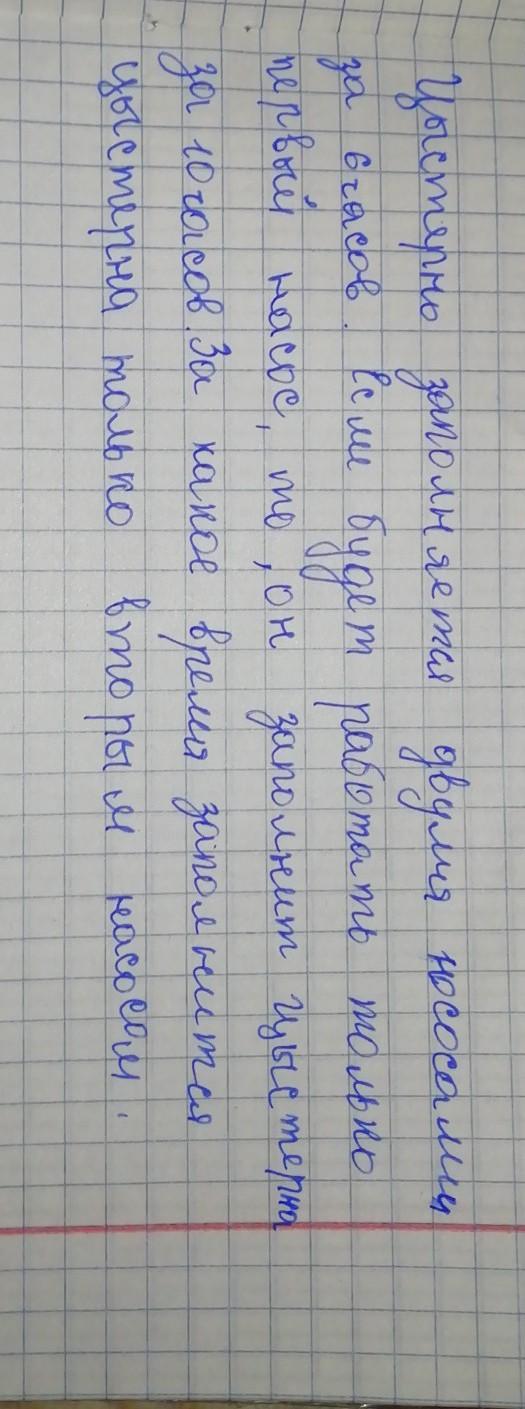 Цыстернь заполняется двумя нососами
за 6 часов. Если будет работать только
первый насос, то, он заполнит цыстерна
за 10 часов. За какое время заполнится
цыстерна только вторым насосом.